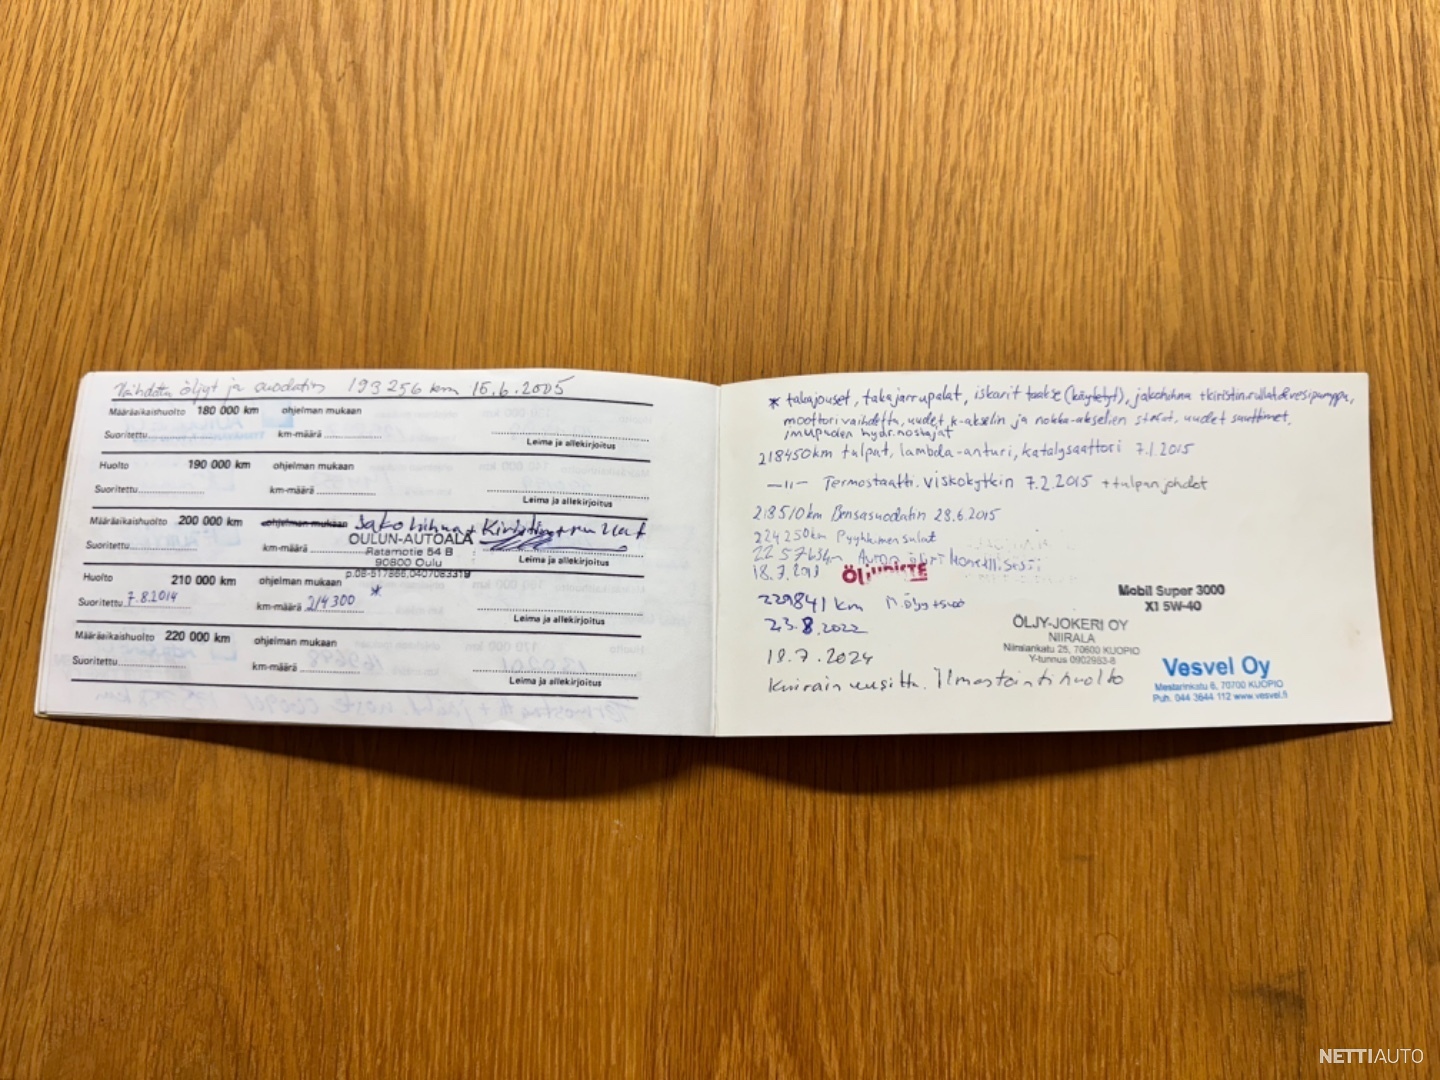 Vaihdettu öljyt ja suodatin 193 256 km 15.6.2005
Määräaikaishuolto 180 000 km ohjelman mukaan
Suoritettu km-määrä
Leima ja allekirjoitus
Huolto 190 000 km ohjelman mukaan
Suoritettu km-määrä
Leima ja allekirjoitus
Määräaikaishuolto 200 000 km ohjelman mukaan Jakohihna + Kiristin + rullat
OULUN-AUTOALA
Suoritettu km-määrä
Ratamotie 54 B
90800 Oulu
Leima ja allekirjoitus
p.08-517866,0407083319
Huolto 210 000 km ohjelman mukaan *
Suoritettu 7.8.2014 km-määrä 214300
Leima ja allekirjoitus
Määräaikaishuolto 220 000 km ohjelman mukaan
Suoritettu km-määrä
Leima ja allekirjoitus
* takajouset, takajarrupalat, iskarit taakse (käytetyt), jakohihna + kiristinrullat & vesipumppu,
moottori vaihdettu, uudet k-akselin ja nokka-akselien stefat, uudet suuttimet,
imupuolen hydr.nostajat
218450km tulpat, lambda-anturi, katalysaattori 7.1.2015
—ıı— Termostaatti. viskokytkin 7.2.2015 + tulpan johdot
218510km Bensasuodatin 28.6.2015
224250km Pyyhkimen sulat
18.7.
229841 km
23.8.2022
18.7.2024
Korirain uusittu. Ilmastointihuolto
Mobil Super 3000
X1 5W-40
ÖLJY-JOKERI OY
NIIRALA
Niiralankatu 25, 70600 KUOPIO
Y-tunnus 0902983-8
Vesvel Oy
Mestarinkatu 6, 70700 KUOPIO
Puh. 044 3644 112 www.vesvel.fi
NETTIAUTO